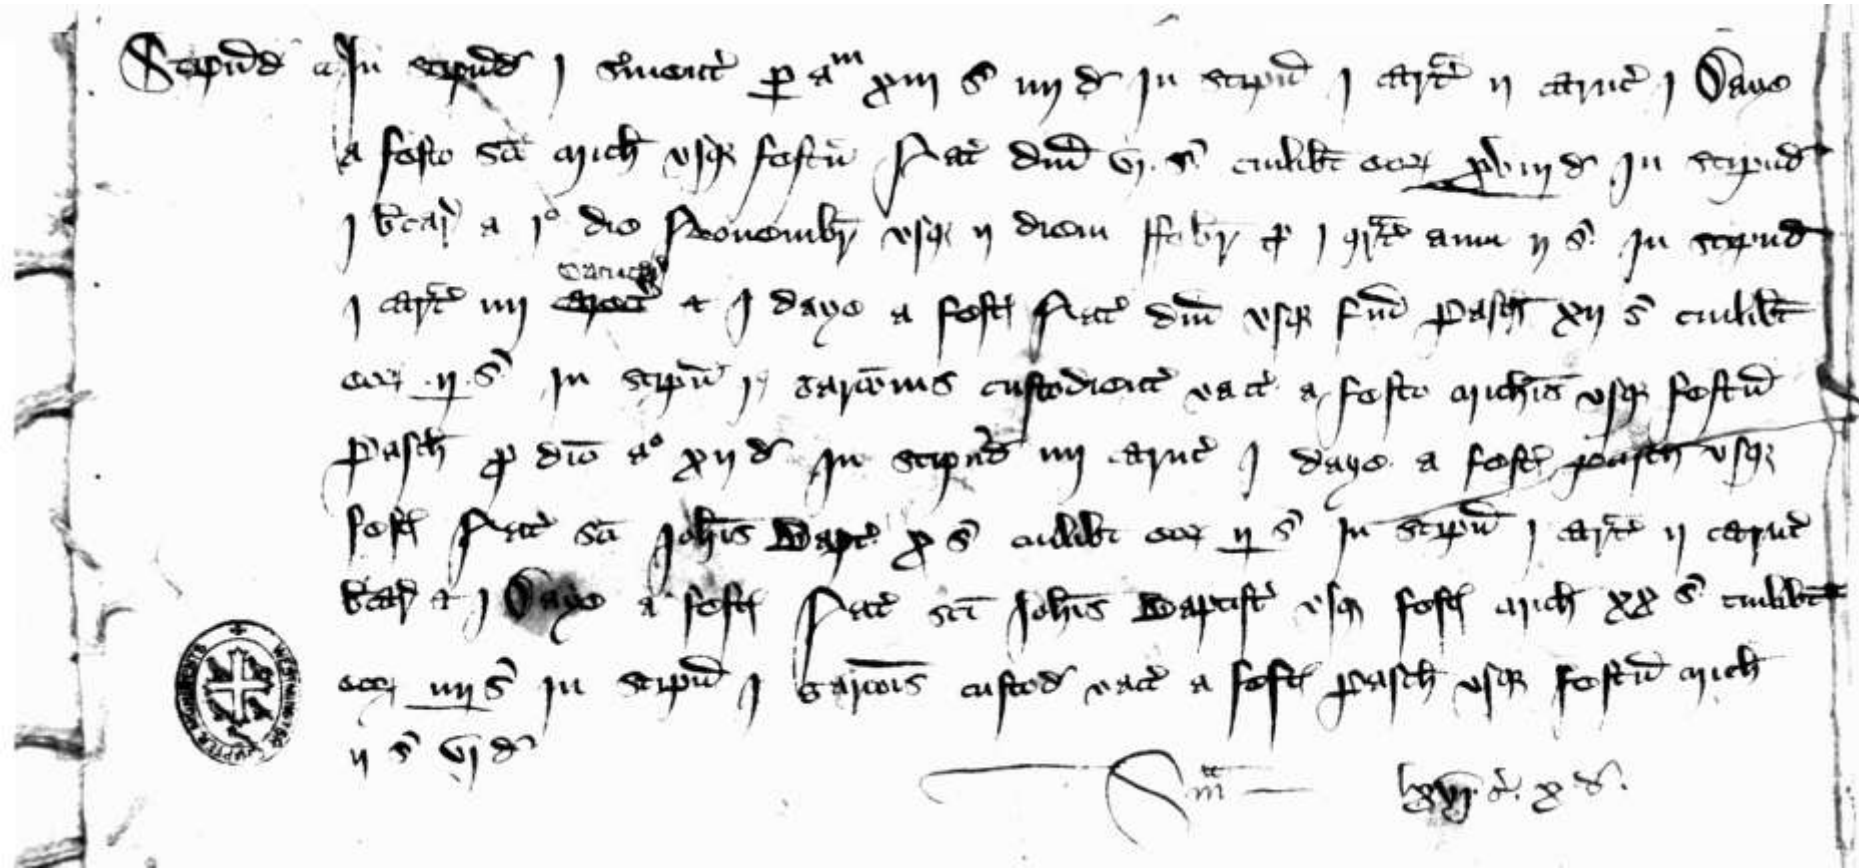 Stipend In stipend j s'uient' p am xiij s iiij d In stipend j caret' ij caruc' j Daye
a festo sci Mich usq festu Nat' dni vj. s' cuilibt eor xviij d In stipend
j b'car' a jo die Nouembr usq ij diem ffebr p j qrt' anni ij s' In stipend
caruc'
j caret' iiij & j daye a fest Nat' dni usq fm Pasch xij s' cuilibt
eor .ij. s' In stipen garcionis custodient' vacc' a festo Mich'is usq festu
Pasch p dio ao xij d In stipend iiij caruc' j daye a fest pasch usq
fest Nat' sci Joh'is Bapt' x s' cuilibt eor ij s' In stipend j caret' ij caruc'
b'car' & j Daye a fest Nat' sci Joh'is Baptist' usq fest Mich xx s' cuilibt
eor iiij s' In stipend j garcois custod vacc' a fest Pasch usq festu Mich
ij s' vj d
Sma lxvj s'. x d.
CHAPTER MUNIMENTS WESTMINSTER